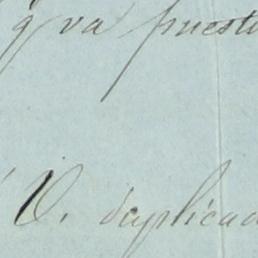 q va puest
V. duplicad